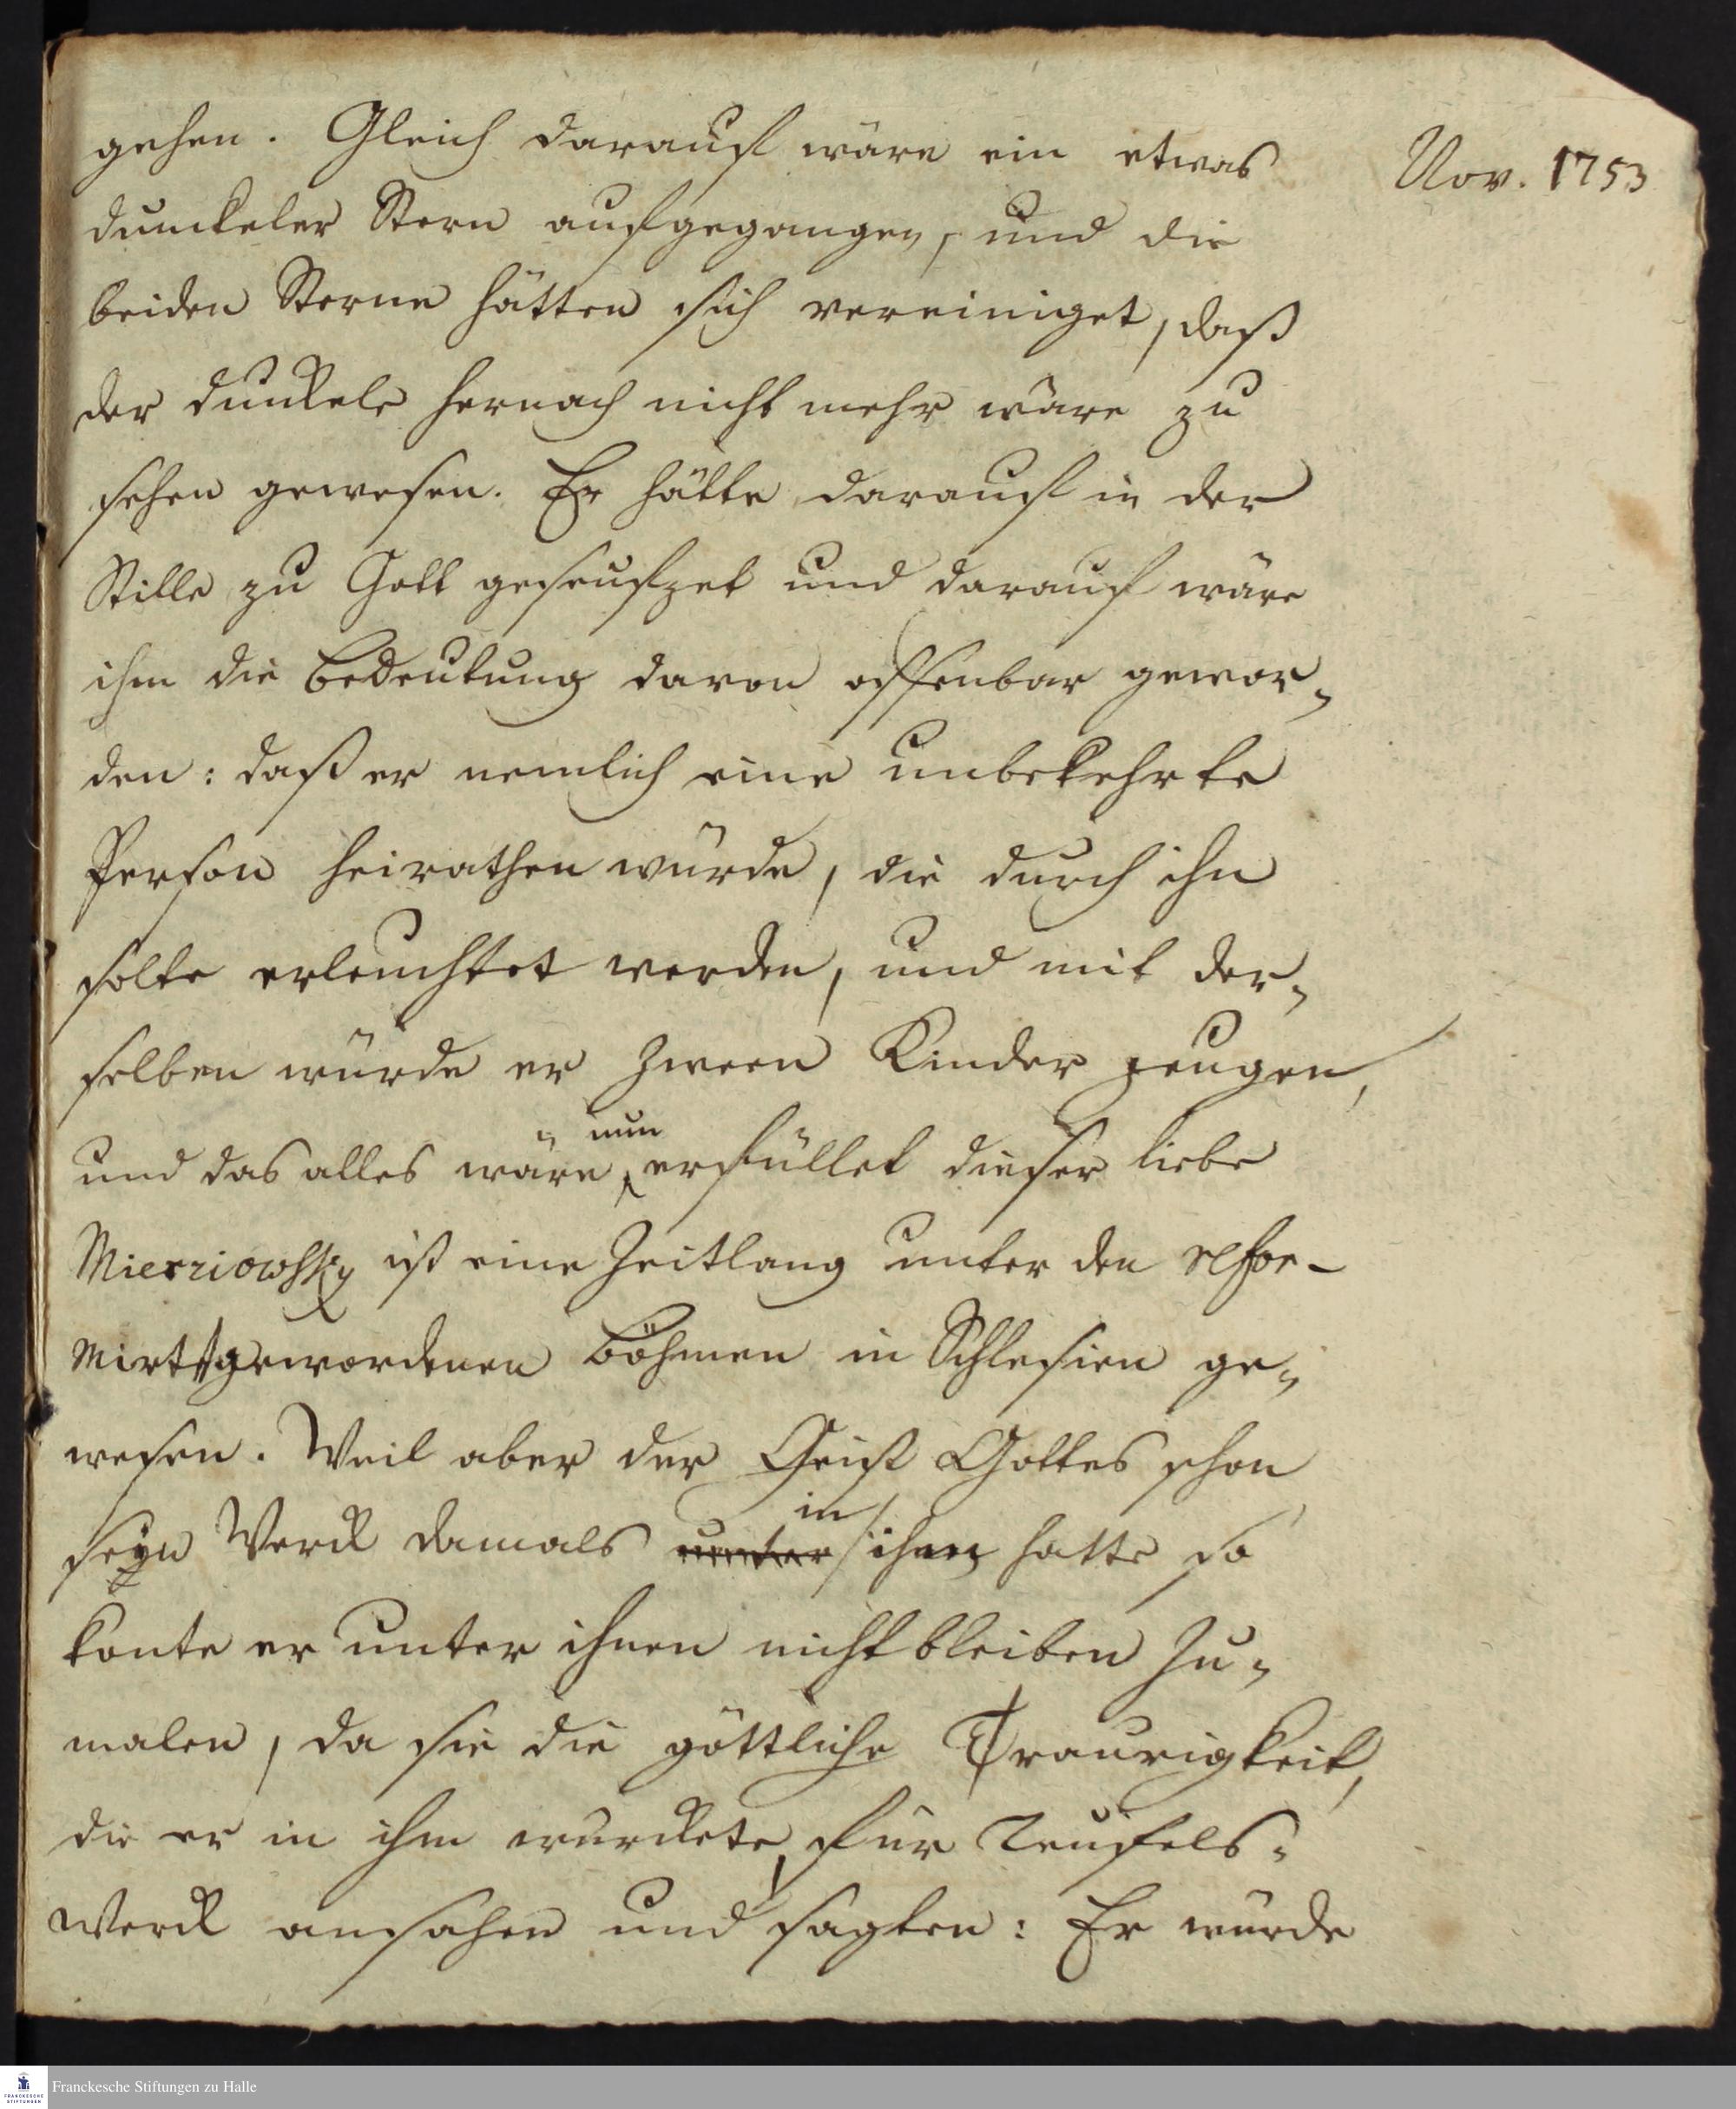 gehen. Gleich darauf wäre ein etwas
Nov. 1753
dunckeler Stern aufgegangen, und die
beiden Sterne hätten sich vereiniget, daß
der dunckele hernach nicht mehr wäre zu
sehen gewesen. Er hätte darauf in der
Stille zu Gott geseufzet und darauf wäre
ihm die Bedeutung davon offenbar gewor-
den: daß er nemlich eine unbekehrte
Person heirathen würde, die durch ihn
solte erleuchtet werden, und mit der-
selben würde er zween Kinder zeugen,
nun
und das alles wäre erfüllet dieser liebe
Mierziowsky ist eine Zeitlang unter den refor-
mirt gewordenen Böhmen in Schlesien ge-
wesen. Weil aber der Geist Gottes schon
in
seyn Werck damals unter ihm hatte so
konte er unter ihnen nicht bleiben zu-
malen, da sie die göttliche Traurigkeit,
die er in ihm würckete, für Teufels-
Werck ansahen und sagten: Er würde
Franckesche Stiftungen zu Halle
FRANCKESCHE
STIFTUNGEN